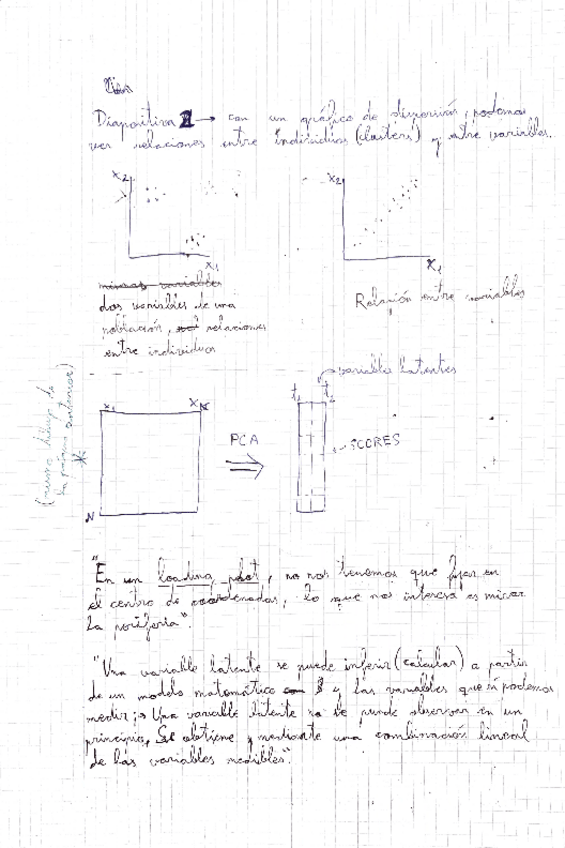 Diapositiva 1 → con un gráfico de dispersión, podemos
ver relaciones entre individuos (clusters) y entre variables.
x2
x1
x2
x1
mismas variables
dos variables de una
población, relaciones
entre individuos
Relación entre variables
variables latentes
t1
t2
(mismo dibujo de
la página anterior)
x1
xK
N
PCA
SCORES
"En un loading plot, no nos tenemos que fijar en
el centro de coordenadas, lo que nos interesa es mirar
la periferia".
"Una variable latente se puede inferir (calcular) a partir
de un modelo matemático y las variables que sí podemos
medir; Una variable latente no se puede observar en un
principio, Se obtiene mediante una combinación lineal
de las variables medibles".